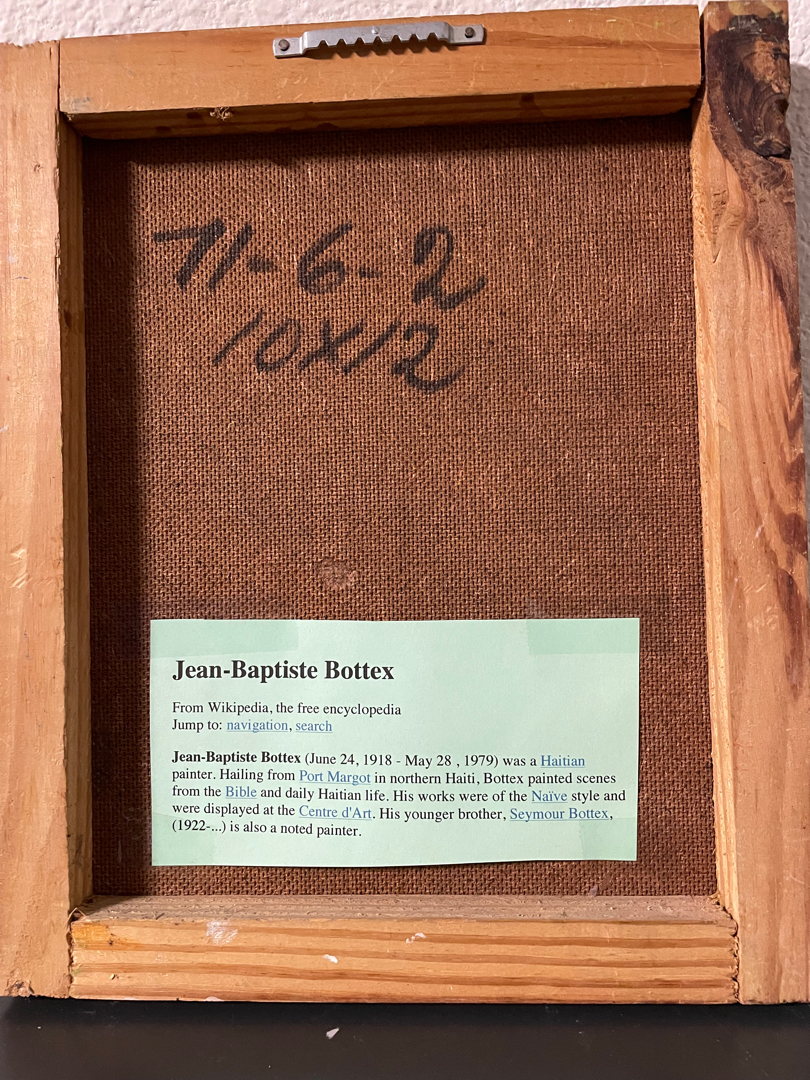 71-6-2
10X12
Jean-Baptiste Bottex
From Wikipedia, the free encyclopedia
Jump to: navigation, search
Jean-Baptiste Bottex (June 24, 1918 - May 28 , 1979) was a Haitian
painter. Hailing from Port Margot in northern Haiti, Bottex painted scenes
from the Bible and daily Haitian life. His works were of the Naïve style and
were displayed at the Centre d'Art. His younger brother, Seymour Bottex,
(1922-...) is also a noted painter.